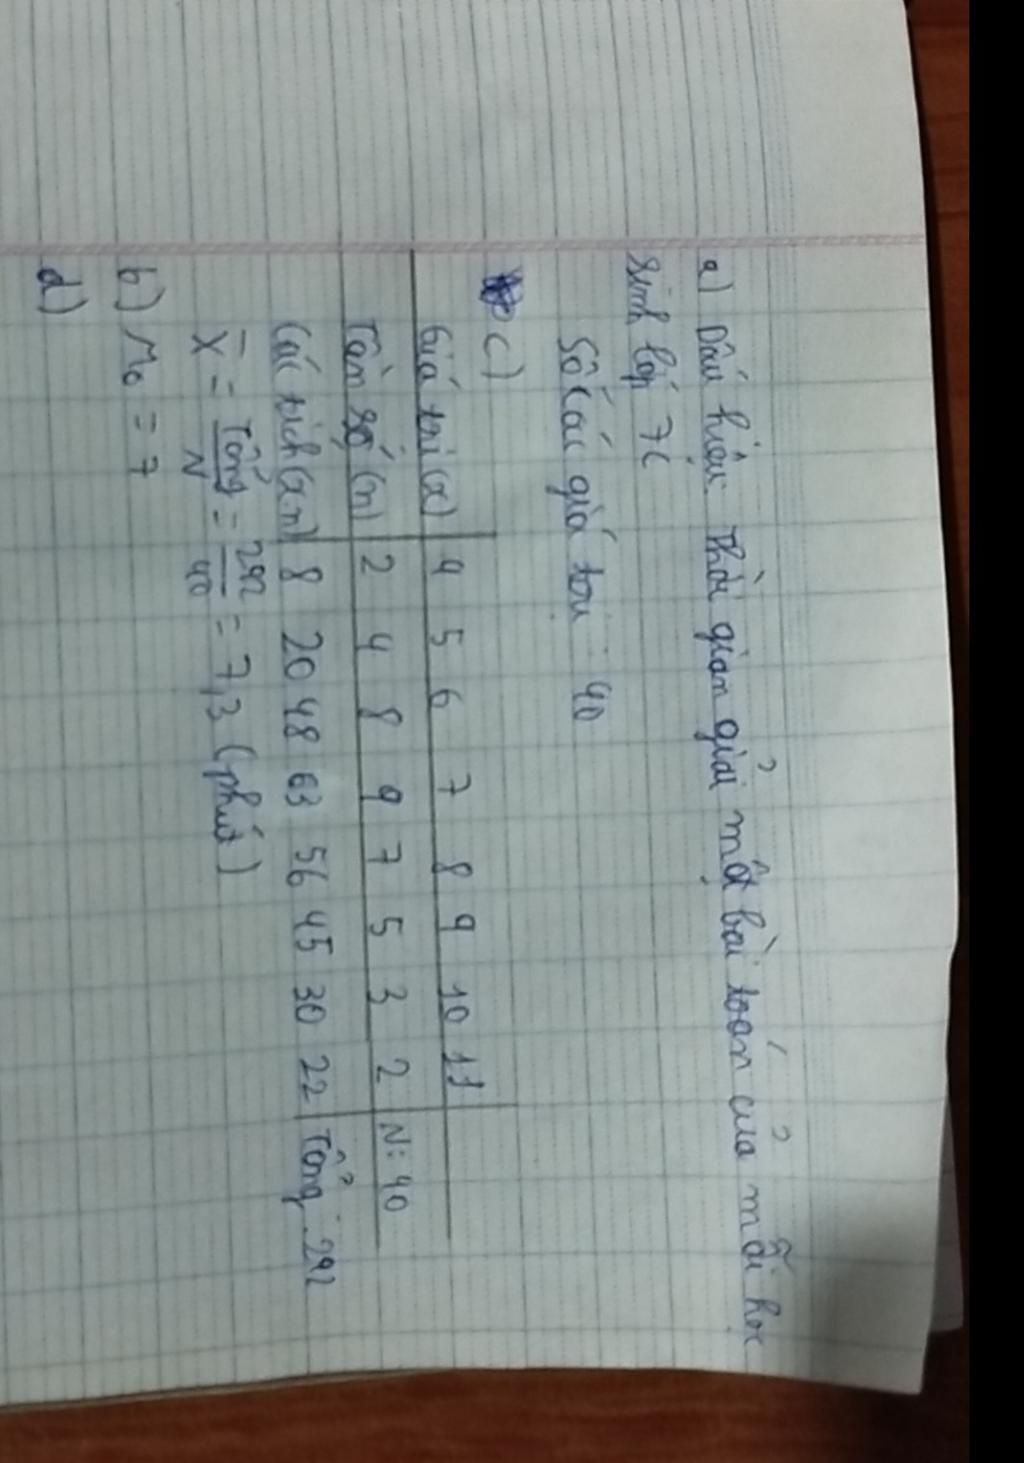 a) Dấu hiệu: Thời gian giải một bài toán của mỗi học
sinh lớp 7C
Số các giá trị: 40
c)
Giá trị (x) 4 5 6 7 8 9 10 11
Tần số (n) 2 4 8 9 7 5 3 2 N: 40
Các tích (x.n) 8 20 48 63 56 45 30 22 Tổng: 292
X̄ = Tổng/N = 292/40 = 7,3 (phút)
b) M₀ = 7
d)